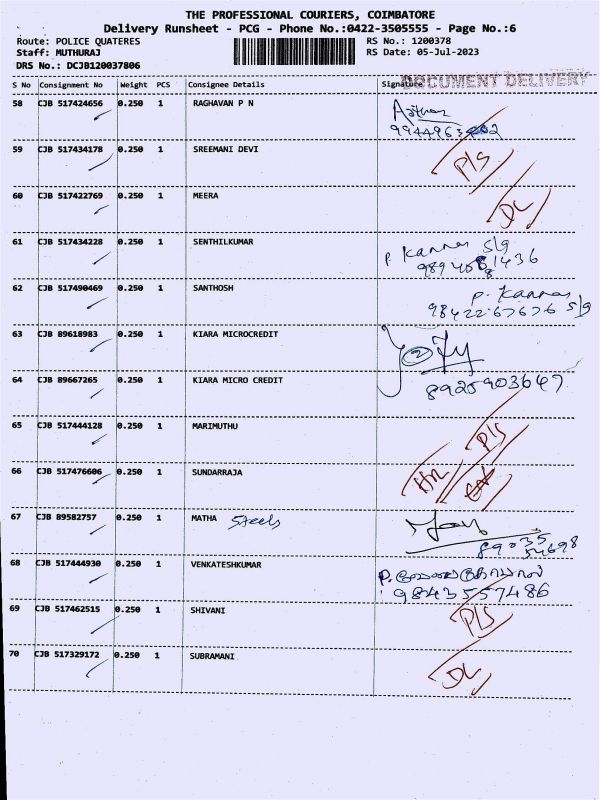 THE PROFESSIONAL COURIERS, COIMBATORE
Delivery Runsheet - PCG - Phone No.:0422-3505555 - Page No.:6
Route: POLICE QUATERES RS No.: 1200378
Staff: MUTHURAJ RS Date: 05-Jul-2023
DRS No.: DCJB120037806
DOCUMENT DELIVERY
S No Consignment No Weight PCS Consignee Details Signature
58 CJB 517424656 0.250 1 RAGHAVAN P N
59 CJB 517434178 0.250 1 SREEMANI DEVI P/S
60 CJB 517422769 0.250 1 MEERA DL
61 CJB 517434228 0.250 1 SENTHILKUMAR P. Kannan S/g
62 CJB 517490469 0.250 1 SANTHOSH P. Kannan
9842267676 S/g
63 CJB 89618983 0.250 1 KIARA MICROCREDIT
64 CJB 89667265 0.250 1 KIARA MICRO CREDIT 8925903647
65 CJB 517444128 0.250 1 MARIMUTHU P/S
66 CJB 517476606 0.250 1 SUNDARRAJA
67 CJB 89582757 0.250 1 MATHA Steels
89035
54698
68 CJB 517444930 0.250 1 VENKATESHKUMAR
9843557486
69 CJB 517462515 0.250 1 SHIVANI P/S
70 CJB 517329172 0.250 1 SUBRAMANI DL